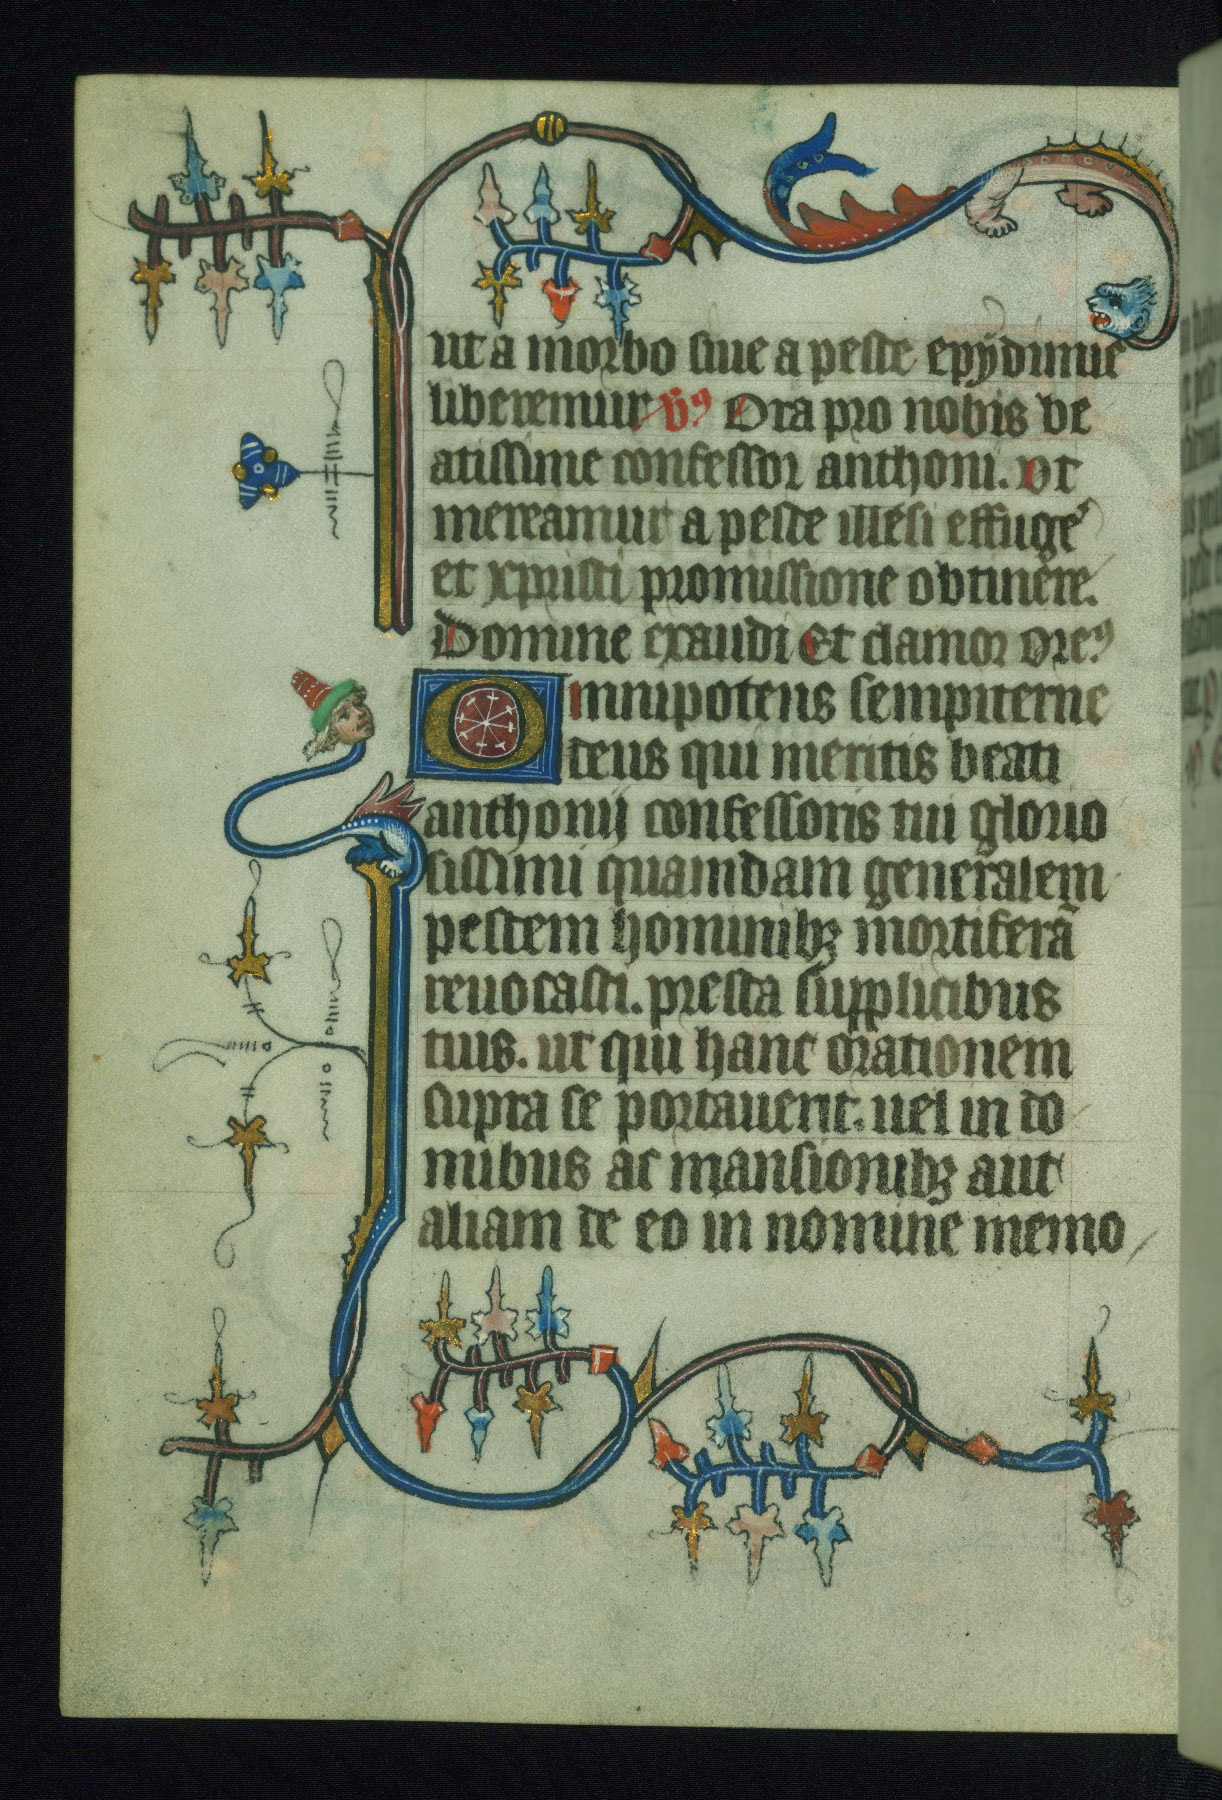 ut a morbo siue a peste epydimie
liberemur Vꝰ Ora pro nobis be
atissime confessor anthoni. Ut
mereamur a peste illesi effuge᾽
et xpristi promissione obtinere.
Domine exaudi Et clamor Oreꝰ
Omnipotens sempiterne
deus qui meritis beati
anthonij confessoris tui glorio
sissimi quamdam generalem
pestem hominibꝫ mortiferā
reuocasti. presta supplicibus
tuis. ut qui hanc orationem
supra se portauerit. uel in do
mibus ac mansionibꝫ aut
aliam de eo in nomine memo